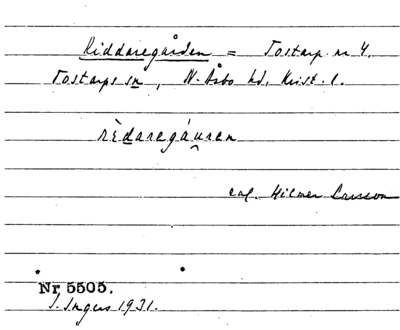 Riddaregården = Tostarp nr 4.
Tostarps sn, N. Åsbo hd, Krist. l.
rèdaregáuren
enl. Hilmer Larsson
Nr 5505.
I. Ingers 1931.